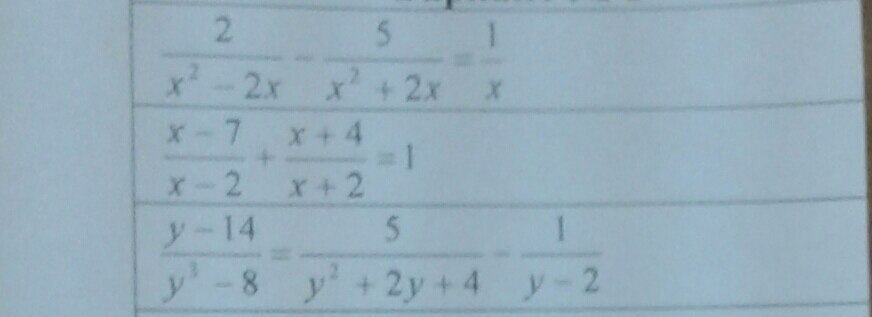 2/(x² - 2x) - 5/(x² + 2x) = 1/x
(x - 7)/(x - 2) + (x + 4)/(x + 2) = 1
(y - 14)/(y³ - 8) = 5/(y² + 2y + 4) - 1/(y - 2)